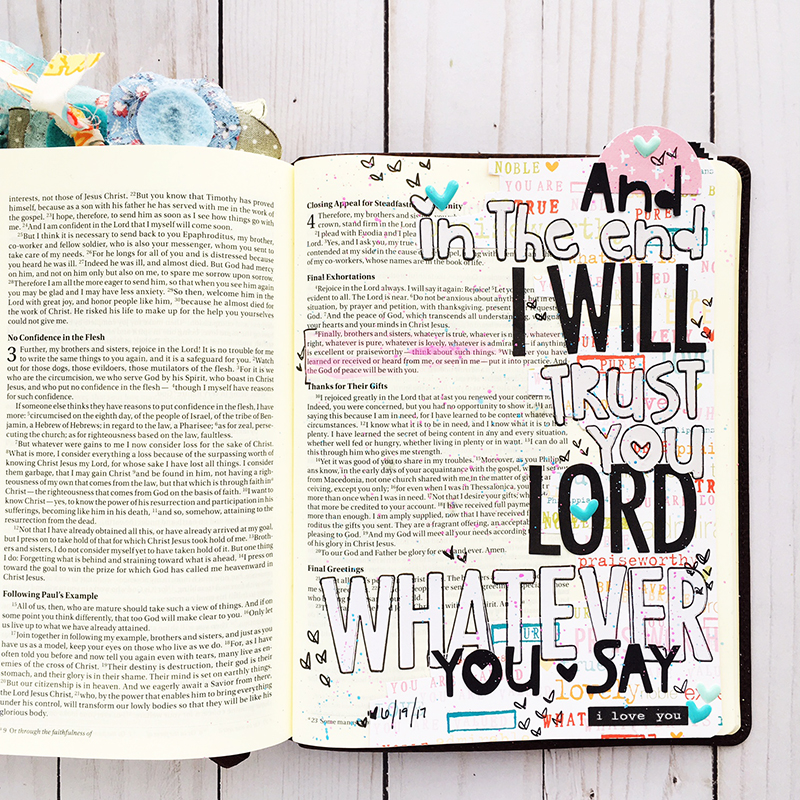 interests, not those of Jesus Christ. 22But you know that Timothy has proved
himself, because as a son with his father he has served with me in the work of
the gospel. 23I hope, therefore, to send him as soon as I see how things go with
me. 24And I am confident in the Lord that I myself will come soon.
25But I think it is necessary to send back to you Epaphroditus, my brother,
co-worker and fellow soldier, who is also your messenger, whom you sent to
take care of my needs. 26For he longs for all of you and is distressed because
you heard he was ill. 27Indeed he was ill, and almost died. But God had mercy
on him, and not on him only but also on me, to spare me sorrow upon sorrow.
28Therefore I am all the more eager to send him, so that when you see him again
you may be glad and I may have less anxiety. 29So then, welcome him in the
Lord with great joy, and honor people like him, 30because he almost died for
the work of Christ. He risked his life to make up for the help you yourselves
could not give me.
No Confidence in the Flesh
3 Further, my brothers and sisters, rejoice in the Lord! It is no trouble for me
to write the same things to you again, and it is a safeguard for you. 2Watch
out for those dogs, those evildoers, those mutilators of the flesh. 3For it is we
who are the circumcision, we who serve God by his Spirit, who boast in Christ
Jesus, and who put no confidence in the flesh— 4though I myself have reasons
for such confidence.
If someone else thinks they have reasons to put confidence in the flesh, I have
more: 5circumcised on the eighth day, of the people of Israel, of the tribe of Ben-
jamin, a Hebrew of Hebrews; in regard to the law, a Pharisee; 6as for zeal, perse-
cuting the church; as for righteousness based on the law, faultless.
7But whatever were gains to me I now consider loss for the sake of Christ.
8What is more, I consider everything a loss because of the surpassing worth of
knowing Christ Jesus my Lord, for whose sake I have lost all things. I consider
them garbage, that I may gain Christ 9and be found in him, not having a righ-
teousness of my own that comes from the law, but that which is through faith in
Christ—the righteousness that comes from God on the basis of faith. 10I want to
know Christ—yes, to know the power of his resurrection and participation in his
sufferings, becoming like him in his death, 11and so, somehow, attaining to the
resurrection from the dead.
12Not that I have already obtained all this, or have already arrived at my goal,
but I press on to take hold of that for which Christ Jesus took hold of me. 13Broth-
ers and sisters, I do not consider myself yet to have taken hold of it. But one thing
I do: Forgetting what is behind and straining toward what is ahead, 14I press on
toward the goal to win the prize for which God has called me heavenward in
Christ Jesus.
Following Paul's Example
15All of us, then, who are mature should take such a view of things. And if on
some point you think differently, that too God will make clear to you. 16Only let
us live up to what we have already attained.
17Join together in following my example, brothers and sisters, and just as you
have us as a model, keep your eyes on those who live as we do. 18For, as I have
often told you before and now tell you again even with tears, many live as en-
emies of the cross of Christ. 19Their destiny is destruction, their god is their
stomach, and their glory is in their shame. Their mind is set on earthly things.
20But our citizenship is in heaven. And we eagerly await a Savior from there,
the Lord Jesus Christ, 21who, by the power that enables him to bring everything
under his control, will transform our lowly bodies so that they will be like his
glorious body.
9 Or through the faithfulness of
Closing Appeal for Steadfastness
4 Therefore, my brothers and
crown, stand firm in the Lord
2I plead with Euodia and I plea
Lord. 3Yes, and I ask you, my true
contended at my side in the cause
of my co-workers, whose names are in the book of life.
Final Exhortations
4Rejoice in the Lord always. I will say it again: Rejoice! 5Let your
evident to all. The Lord is near. 6Do not be anxious about anything, but in
situation, by prayer and petition, with thanksgiving, present
God. 7And the peace of God, which transcends all understanding,
your hearts and your minds in Christ Jesus.
8Finally, brothers and sisters, whatever is true, whatever is
right, whatever is pure, whatever is lovely, whatever is admirable—if anything
is excellent or praiseworthy—think about such things. 9Whatever you have
learned or received or heard from me, or seen in me—put it into practice.
the God of peace will be with you.
Thanks for Their Gifts
10I rejoiced greatly in the Lord that at last you renewed your concern
Indeed, you were concerned, but you had no opportunity to show it. 11I am
saying this because I am in need, for I have learned to be content whatever
circumstances. 12I know what it is to be in need, and I know what it is to
plenty. I have learned the secret of being content in any and every situation,
whether well fed or hungry, whether living in plenty or in want. 13I can do all
this through him who gives me strength.
14Yet it was good of you to share in my troubles. 15Moreover, as you Philip
ans know, in the early days of your acquaintance with the gospel,
from Macedonia, not one church shared with me in the matter of
ceiving, except you only; 16for even when I was in Thessalonica, you
more than once when I was in need. 17Not that I desire your gifts;
that more be credited to your account. 18I have received full
more than enough. I am amply supplied, now that I have received
roditus the gifts you sent. They are a fragrant offering, an acceptable
pleasing to God. 19And my God will meet all your needs according
of his glory in Christ Jesus.
20To our God and Father be glory for ever and ever. Amen.
Final Greetings
And
in The end
I WILL
TRUST
YOU
LORD
WHATEVER
YOU SAY
NOBLE
YOU ARE
TRUE
PURE
PURE
praiseworth
lovely
WHAT
i love you
6/19/17